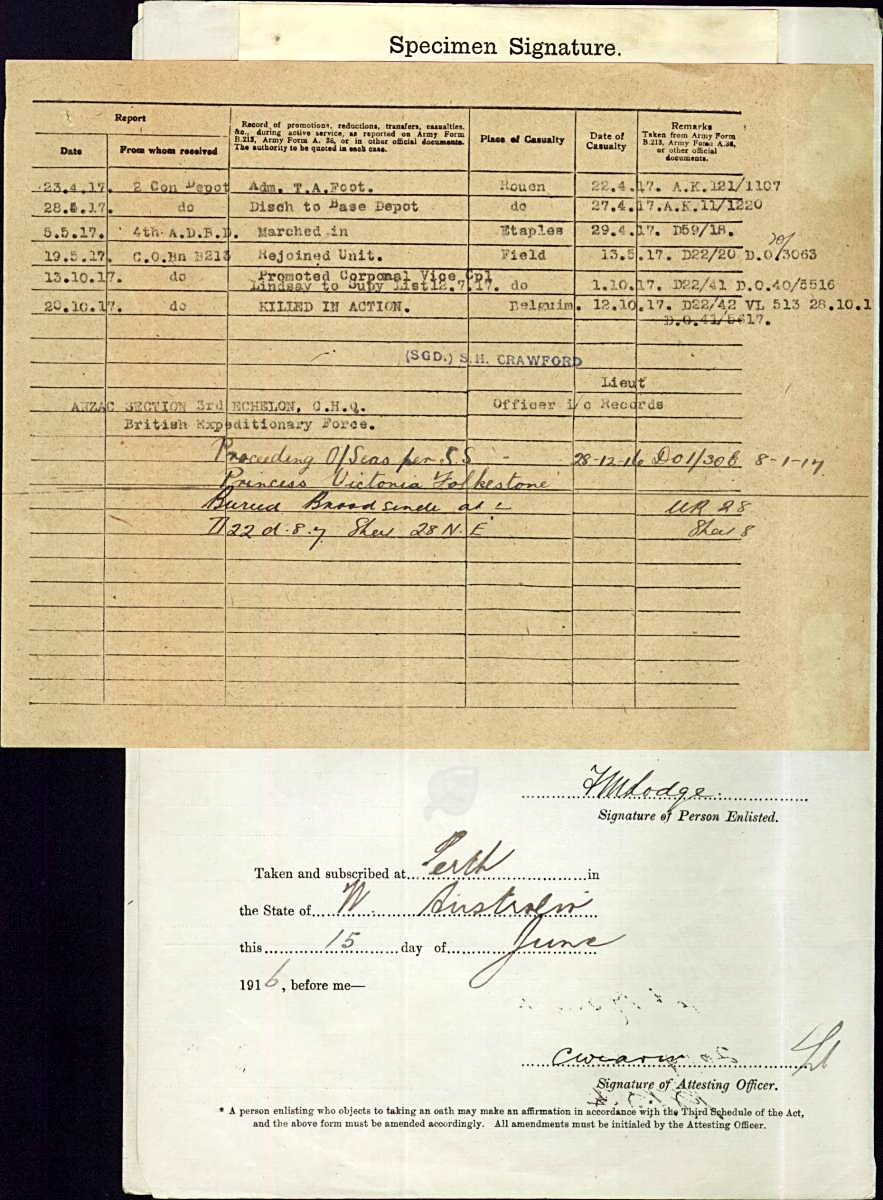 Specimen Signature.
Report
Record of promotions, reductions, transfers, casualties, &c., during active service, as reported on Army Form B.213, Army Form A. 36, or in other official documents. The authority to be quoted in each case.
Place of Casualty
Date of Casualty
Remarks Taken from Army Form B.213, Army Form A.36, or other official documents.
Date From whom received
23.4.17. 2 Con Depot Adm. T.A.Foot. Rouen 22.4.17. A.K.121/1107
28.4.17. do Disch to Base Depot do 27.4.17.A.K.11/1220
5.5.17. 4th A.D.B.D. Marched in Etaples 29.4.17. D59/18.
19.5.17. C.O.Bn B213 Rejoined Unit. Field 13.5.17. D22/20 D.O/3063
13.10.17. do Promoted Corporal Vice Cpl
Lindsay to Supy List12.7.17. do 1.10.17. D22/41 D.O.40/5516
20.10.17. do KILLED IN ACTION. Belguim. 12.10.17. D22/42 VL 513 28.10.1
D.O.41/5617.
(SGD.) S.H. CRAWFORD
Lieut
ANZAC SECTION 3rd ECHELON, G.H.Q. Officer i/c Records
British Expeditionary Force.
Proceeding O/Seas per S.S - 28-12-16 DO1/30 8-1-17
Princess Victoria Folkestone
Buried Broodseinde at
D22 d.8.7 Sheet 28 N.E
FMLodge.
Signature of Person Enlisted.
Taken and subscribed at Perth in
the State of W. Australia
this 15 day of June
1916, before me—
Signature of Attesting Officer.
* A person enlisting who objects to taking an oath may make an affirmation in accordance with the Third Schedule of the Act,
and the above form must be amended accordingly. All amendments must be initialed by the Attesting Officer.